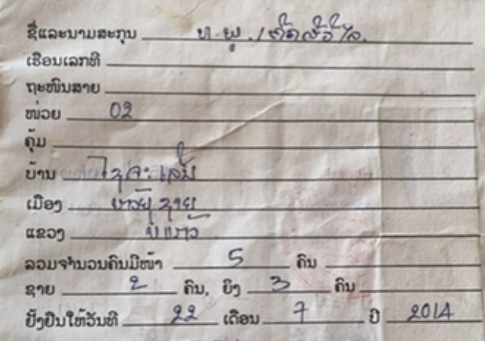 ຊື່ແລະນາມສະກຸນ ທ. ພູ
ເຮືອນເລກທີ
ຖະໜົນສາຍ
ໜ່ວຍ 02
ຄຸ້ມ
ບ້ານ ໄຊຈະເລີນ
ເມືອງ ຫ້ວຍຊາຍ
ແຂວງ ບໍ່ແກ້ວ
ລວມຈຳນວນຄົນມີໜ້າ 5 ຄົນ
ຊາຍ 2 ຄົນ, ຍິງ 3 ຄົນ
ຢັ້ງຢືນໃຫ້ວັນທີ 22 ເດືອນ 7 ປີ 2014